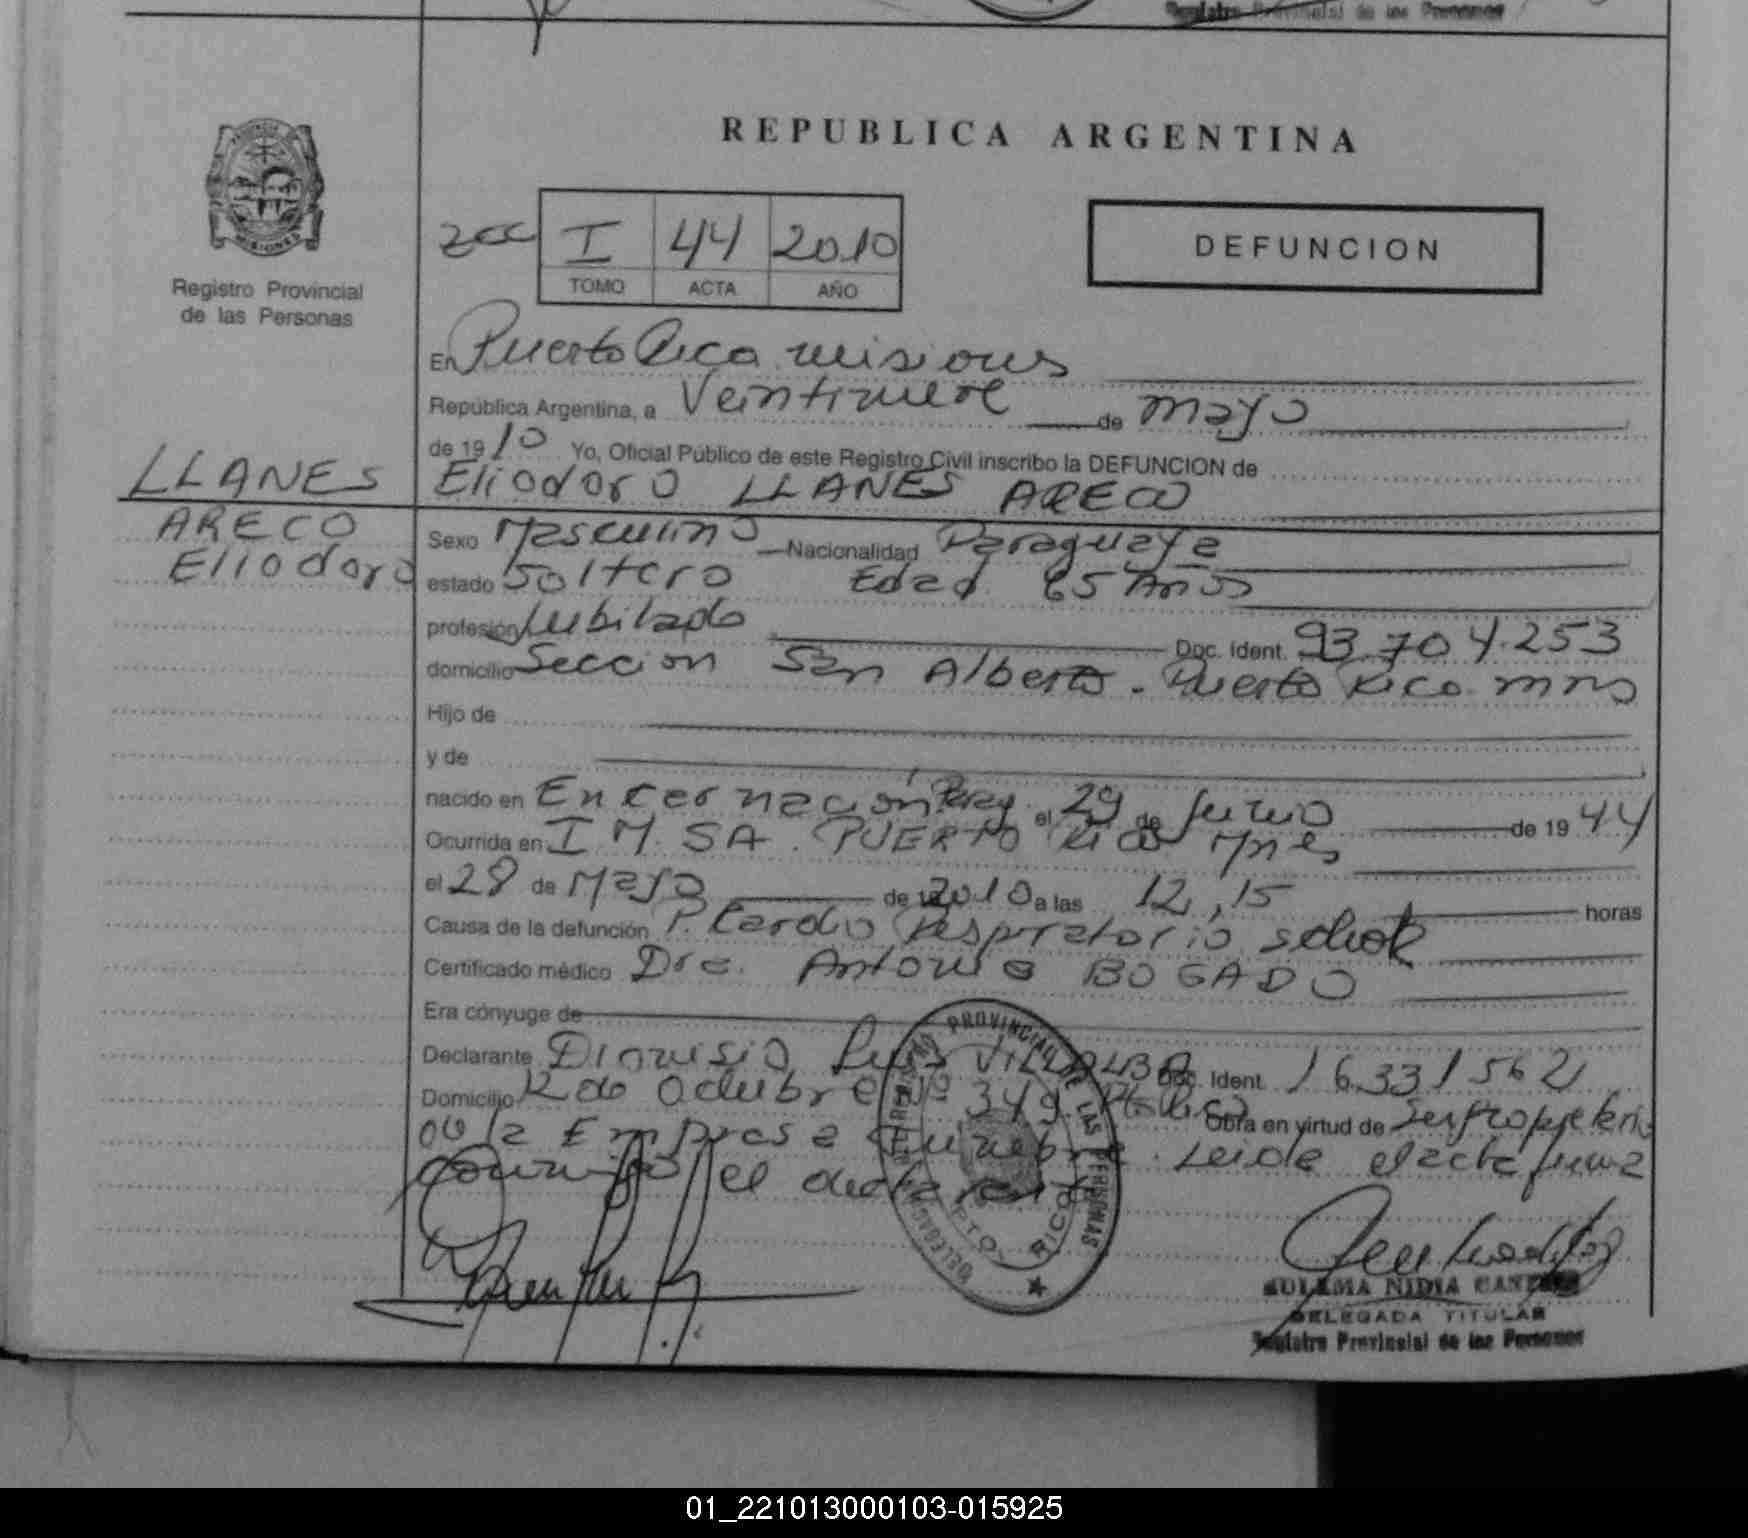 Registro Provincial de las Personas
REPUBLICA ARGENTINA
I 44 2010
TOMO ACTA AÑO
DEFUNCION
Registro Provincial
de las Personas
En Puerto Rico misiones
República Argentina, a Veintinueve de mayo
de 19 10 Yo, Oficial Público de este Registro Civil inscribo la DEFUNCION de
LLANES
Eliodoro LLANES ARECO
ARECO
Eliodoro
Sexo Masculino Nacionalidad Paraguaya
estado Soltero Edad 65 Años
profesión Jubilado Doc. Ident. 93.704.253
domicilio Seccion San Alberto. Puerto Rico mns
Hijo de
y de
nacido en Encarnación Parag. el 29 de Junio de 19 44
Ocurrida en I M. SA. PUERTO Rico Mnes
el 28 de Mayo de 2010 a las 12,15 horas
Causa de la defunción P. Cardio Respiratorio schok
Certificado médico Dra. Antonia BOGADO
Era cónyuge de
Declarante Dionisio Luis VILLALBA Doc. Ident. 16.331562
Domicilio 12 de Octubre Nº 349. Pto Rico Obra en virtud de ser propietario
de la Empresa Funebre. Leida el acta firma
conmigo el declarante
REGISTRO PROVINCIAL DE LAS PERSONAS
DELEGACION
PTO. RICO
ZULEMA NIDIA
DELEGADA TITULAR
Registro Provincial de las Personas
01_221013000103-015925